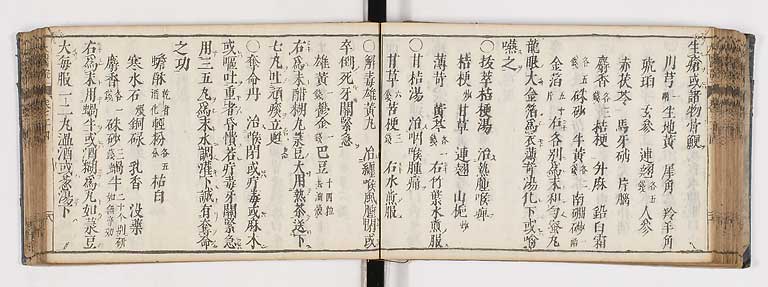 生瘡或諸物骨鯁
川芎 生地黃 犀角 羚羊角
琥珀 玄參 連翹 各五 人參
赤茯苓 馬牙硝 片腦
麝香 各三 桔梗 升麻 鉛白霜
各五 硃砂 牛黃 各二 南硼砂 一
金箔 五十 右各別爲末和勻蜜丸
龍眼大金箔爲衣薄荷湯化下或噙
嚥之
○拔萃桔梗湯 治熱腫喉痺
桔梗 甘草 連翹 山梔
薄荷 黃芩 右竹葉水煎服
○甘桔湯 治咽喉腫痛
甘草 桔梗 三 右水煎服
○解毒雄黃丸 治纏喉風腫閉或
卒倒死牙關緊急
雄黃 一 鬱金 巴豆 十四粒
右爲末醋糊丸菉豆大用熱茶送下
七九吐頑痰立甦
○奪命丹 治喉閉或疔毒或麻木
或嘔吐重者昏憒若疔毒牙關緊急
用三五丸爲末水調灌下誠有奪命
之功
蟾酥 輕粉 各五 枯白
寒水石 煅 銅碌 乳香 沒藥
麝香 各一 硃砂 三 蝸牛 二十个別研
右爲末用蝸牛或酒糊爲丸如菉豆
大每服一二丸溫酒或蔥湯下